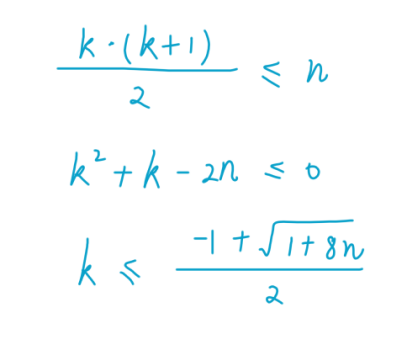 k·(k+1)/2 ≤ n
k² + k - 2n ≤ 0
k ≤ (-1 + √(1+8n))/2